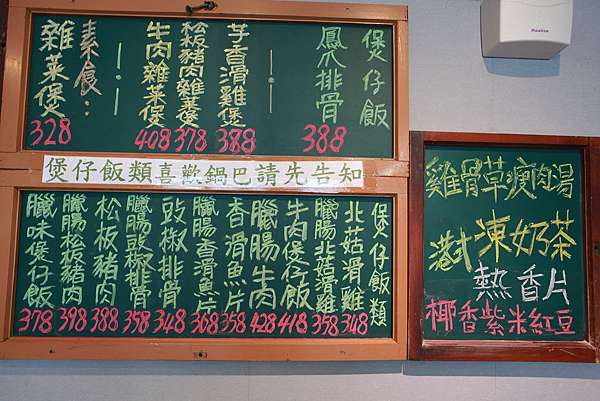 煲仔飯
鳳爪排骨 388
芋香滑雞煲 388
松板豬肉雜菜煲 378
牛肉雜菜煲 408
素食:
雜菜煲 328
煲仔飯類喜歡鍋巴請先告知
煲仔飯類
北菇滑雞 348
臘腸北菇滑雞 358
牛肉煲仔飯 418
臘腸牛肉 428
香滑魚片 358
臘腸香滑魚片 368
豉椒排骨 348
臘腸豉椒排骨 358
松板豬肉 388
臘腸松板豬肉 398
臘味煲仔飯 378
雞骨草瘦肉湯
港式凍奶茶
熱香片
椰香紫米紅豆